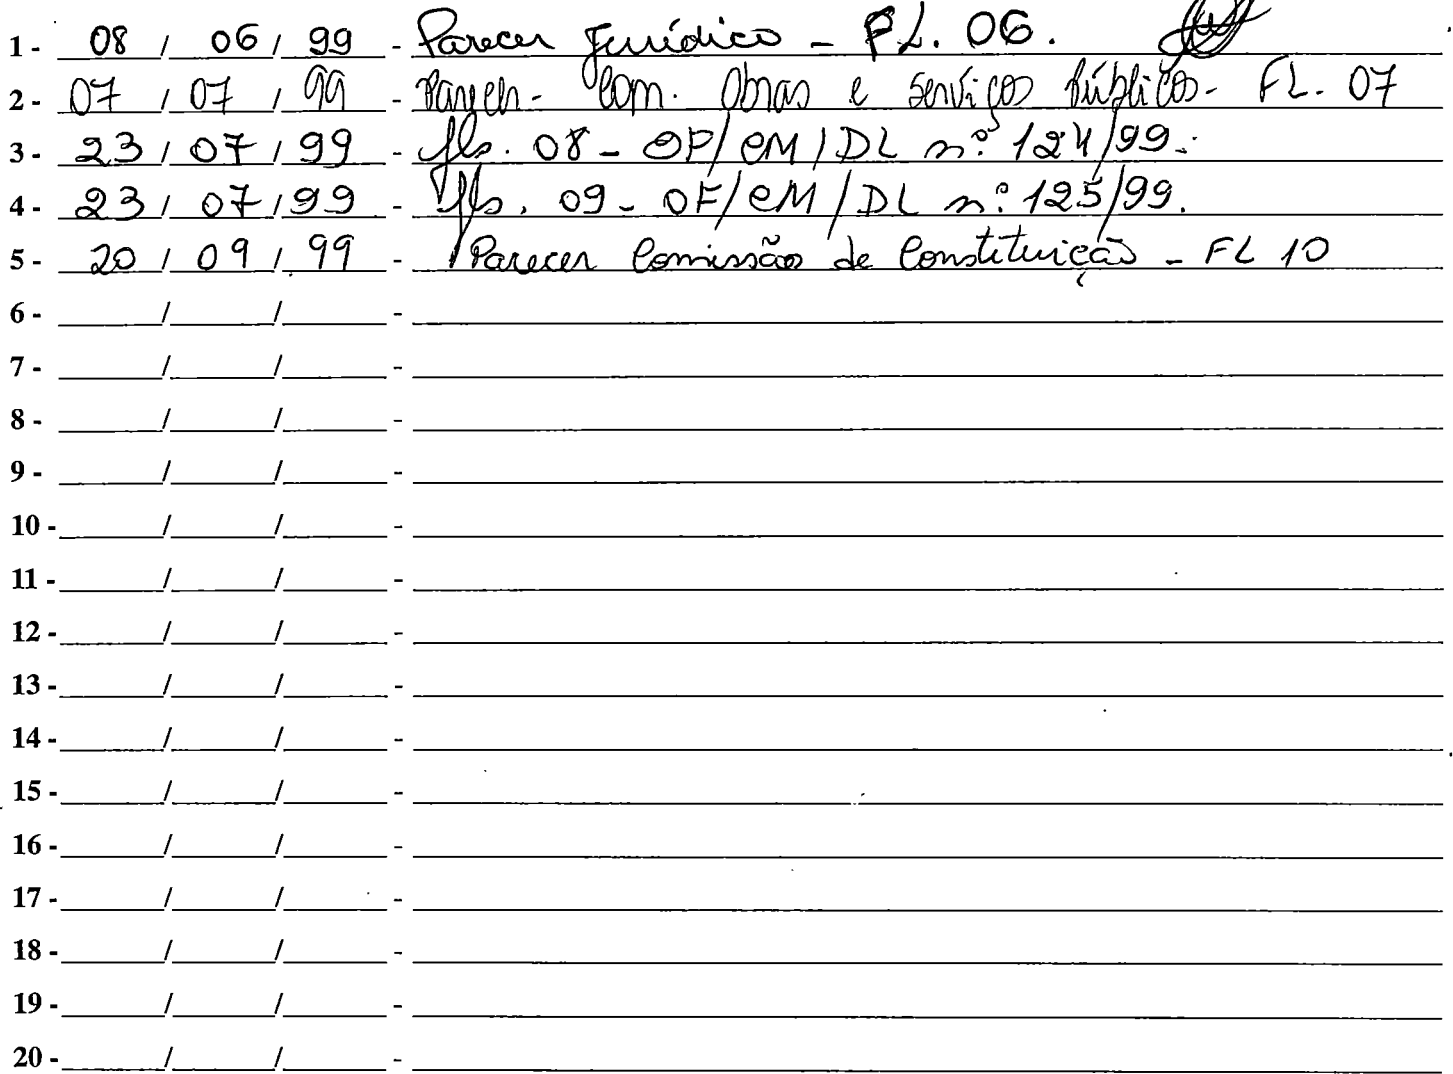 1 - 08 / 06 / 99 - Parecer Jurídico - FL. 06.
2 - 07 / 07 / 99 - Parecer - Com. Obras e Serviços Públicos - FL. 07
3 - 23 / 07 / 99 - fls. 08 - OF/CM/DL nº 124/99.
4 - 23 / 07 / 99 - fls. 09 - OF/CM/DL nº 125/99.
5 - 20 / 09 / 99 - Parecer Comissão de Constituição - FL 10
6 - ____/____/____ -
7 - ____/____/____ -
8 - ____/____/____ -
9 - ____/____/____ -
10 - ____/____/____ -
11 - ____/____/____ -
12 - ____/____/____ -
13 - ____/____/____ -
14 - ____/____/____ -
15 - ____/____/____ -
16 - ____/____/____ -
17 - ____/____/____ -
18 - ____/____/____ -
19 - ____/____/____ -
20 - ____/____/____ -